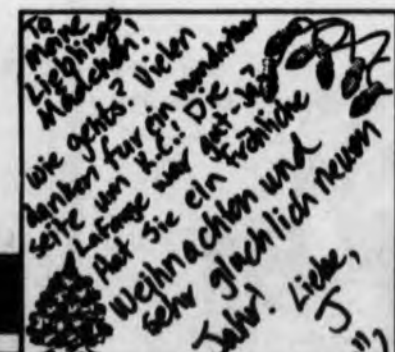 To
Meine
Lieblings
Mädchen!
Wie gehts? Vielen
danken für ein wunderbar
seite von K.C.! Die
Lafarge war gut-Ja?
Hat sie ein fröhliche
Weihnachten und
sehr glücklich neuen
Jahr! Liebe,
J